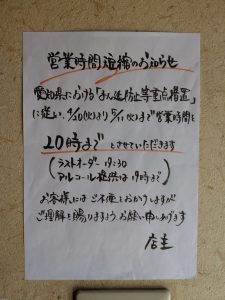 営業時間短縮のお知らせ
愛知県における「まん延防止等重点措置」
に従い、4/20(火)より5/11(火)まで営業時間を
20時まで とさせていただきます
(ラストオーダー 19:30
アルコール提供は19時まで)
お客様にはご不便をおかけしますが
ご理解を賜りますよう、お願い申しあげます
店主